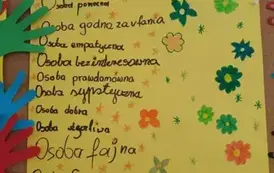 Osoba pomocna
Osoba godna zaufania
Osoba empatyczna
Osoba bezinteresowna
Osoba prawdomówna
Osoba sympatyczna
Osoba dobra
Osoba
Osoba fajna